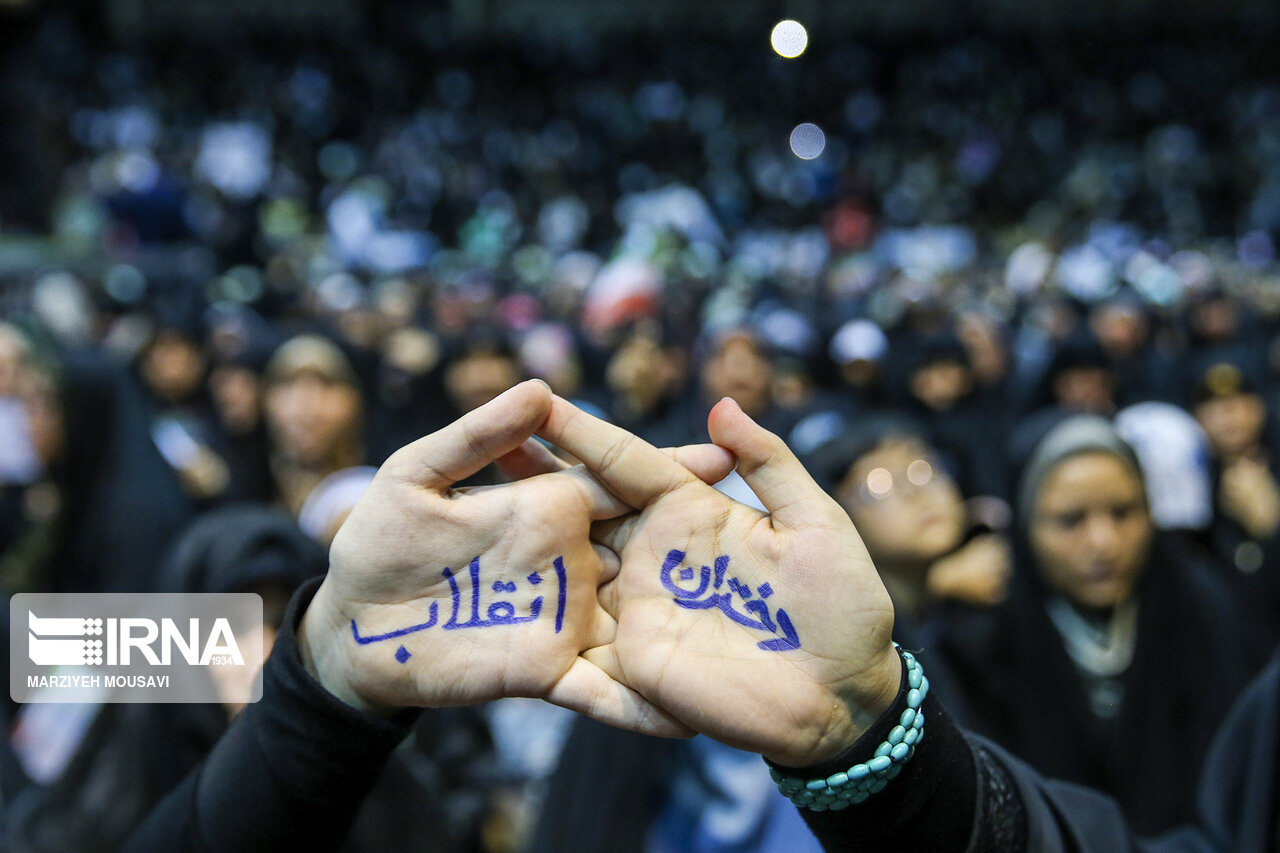 دختران
انقلاب
IRNA
1934
MARZIYEH MOUSAVI